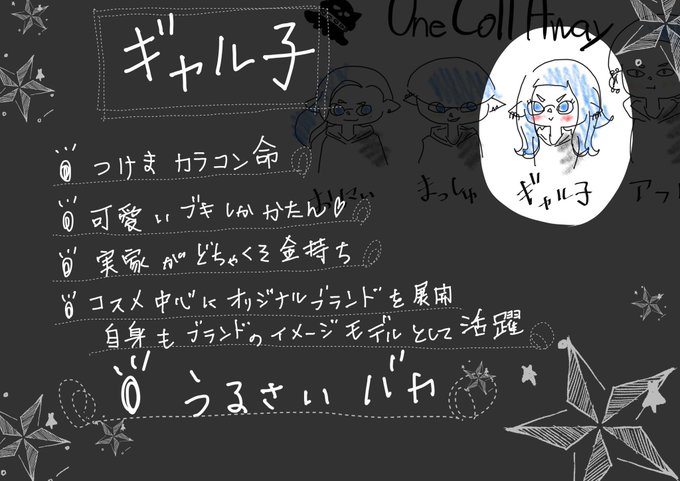 One Coll Away
ギャル子
おにい
まっしゅ
ギャル子
アラ
つけま カラコン命
可愛いブキしかかたん♡
実家がどちゃくそ金持ち
コスメ中心にオリジナルブランドを展開
自身もブランドのイメージモデルとして活躍
うるさいバカ